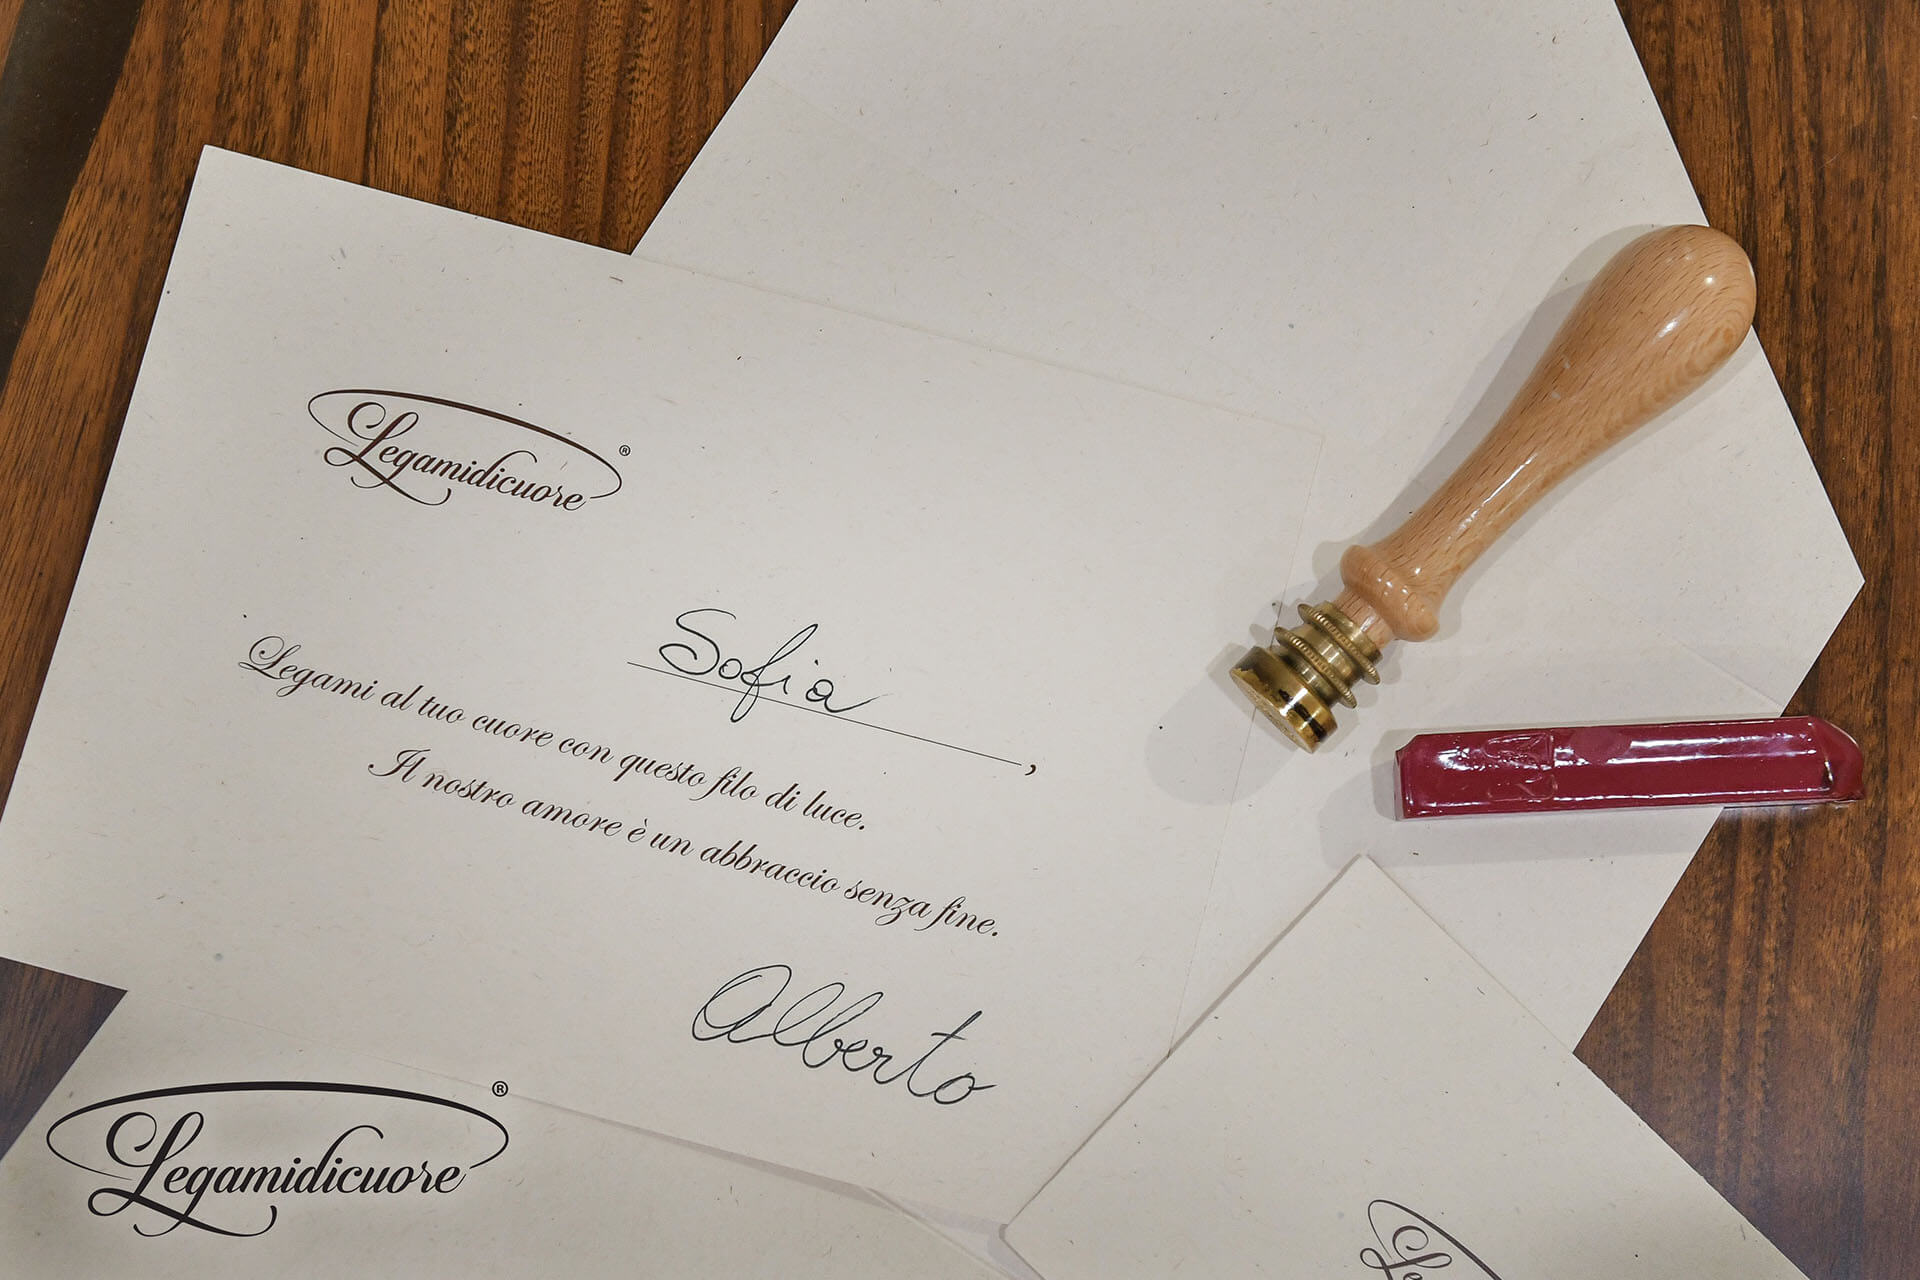 Legamidicuore®
Sofia,
Legami al tuo cuore con questo filo di luce.
Il nostro amore è un abbraccio senza fine.
Alberto
Legamidicuore®
Le